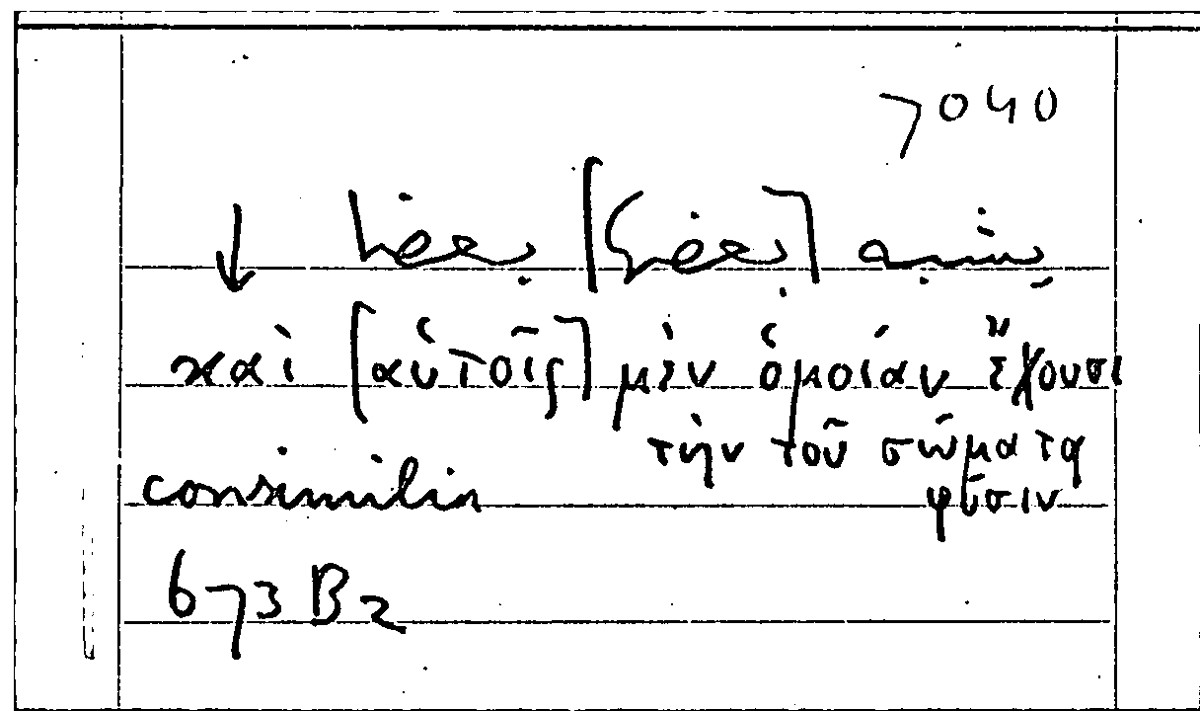 7040
καὶ [αὐτοῖς] μὲν ὁμοίαν ἔχουσι
τὴν τοῦ σώματα
φύσιν
consimilia
673 B2